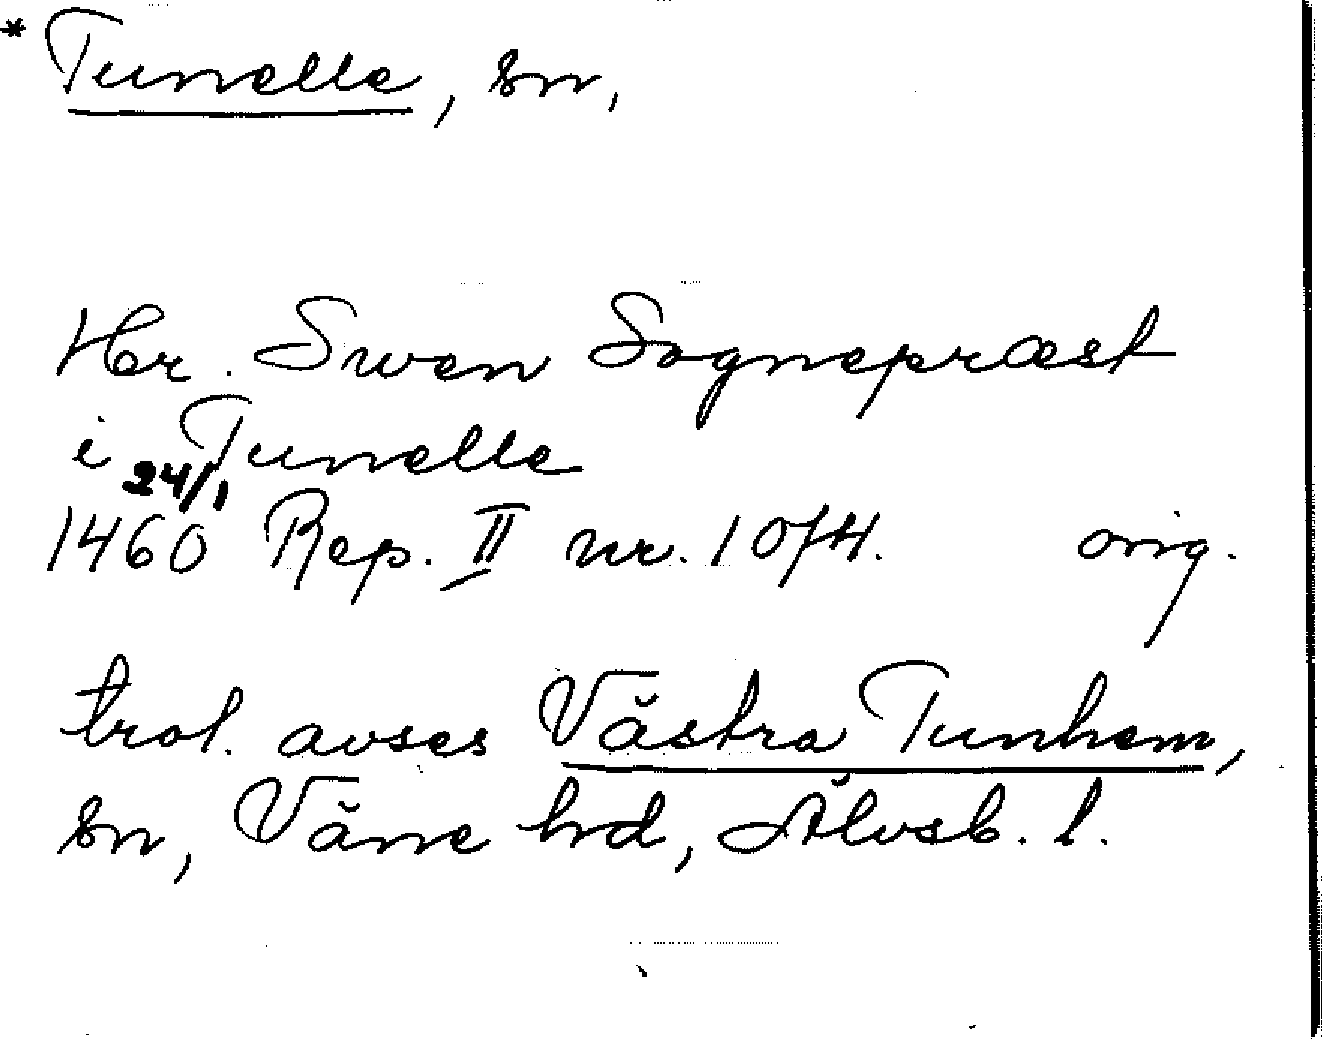 * Tunelle, sn,
Her. Swen Sognepræst
i Tunelle
24/1
1460 Rep. II nr. 1074. orig.
trol. avses Västra Tunhem,
sn, Väne hd, Älvsb. l.